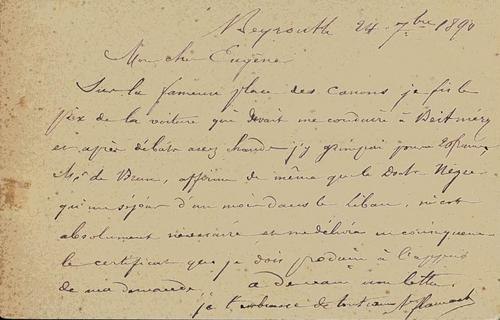 Beyrouth 24 7bre 1890
Mon cher Eugène
Sur la fameuse place des canons je fis le
prix de la voiture qui devait me conduire à Beitméry
et après débats assez chauds j'y grimpai pour
de Brun, affirme de même que le Docteur Nègre
qu'un séjour d'un mois dans le Liban, m'est
absolument nécessaire et me délivre en conséquence
le certificat que je dois produire à l'appui
de ma demande. à demain une lettre.
je t'embrasse de tout cœur